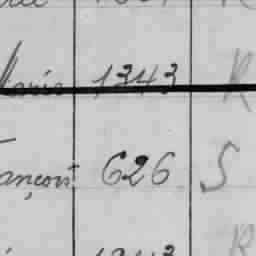 Marie 1343 R
ançois 626 S
R